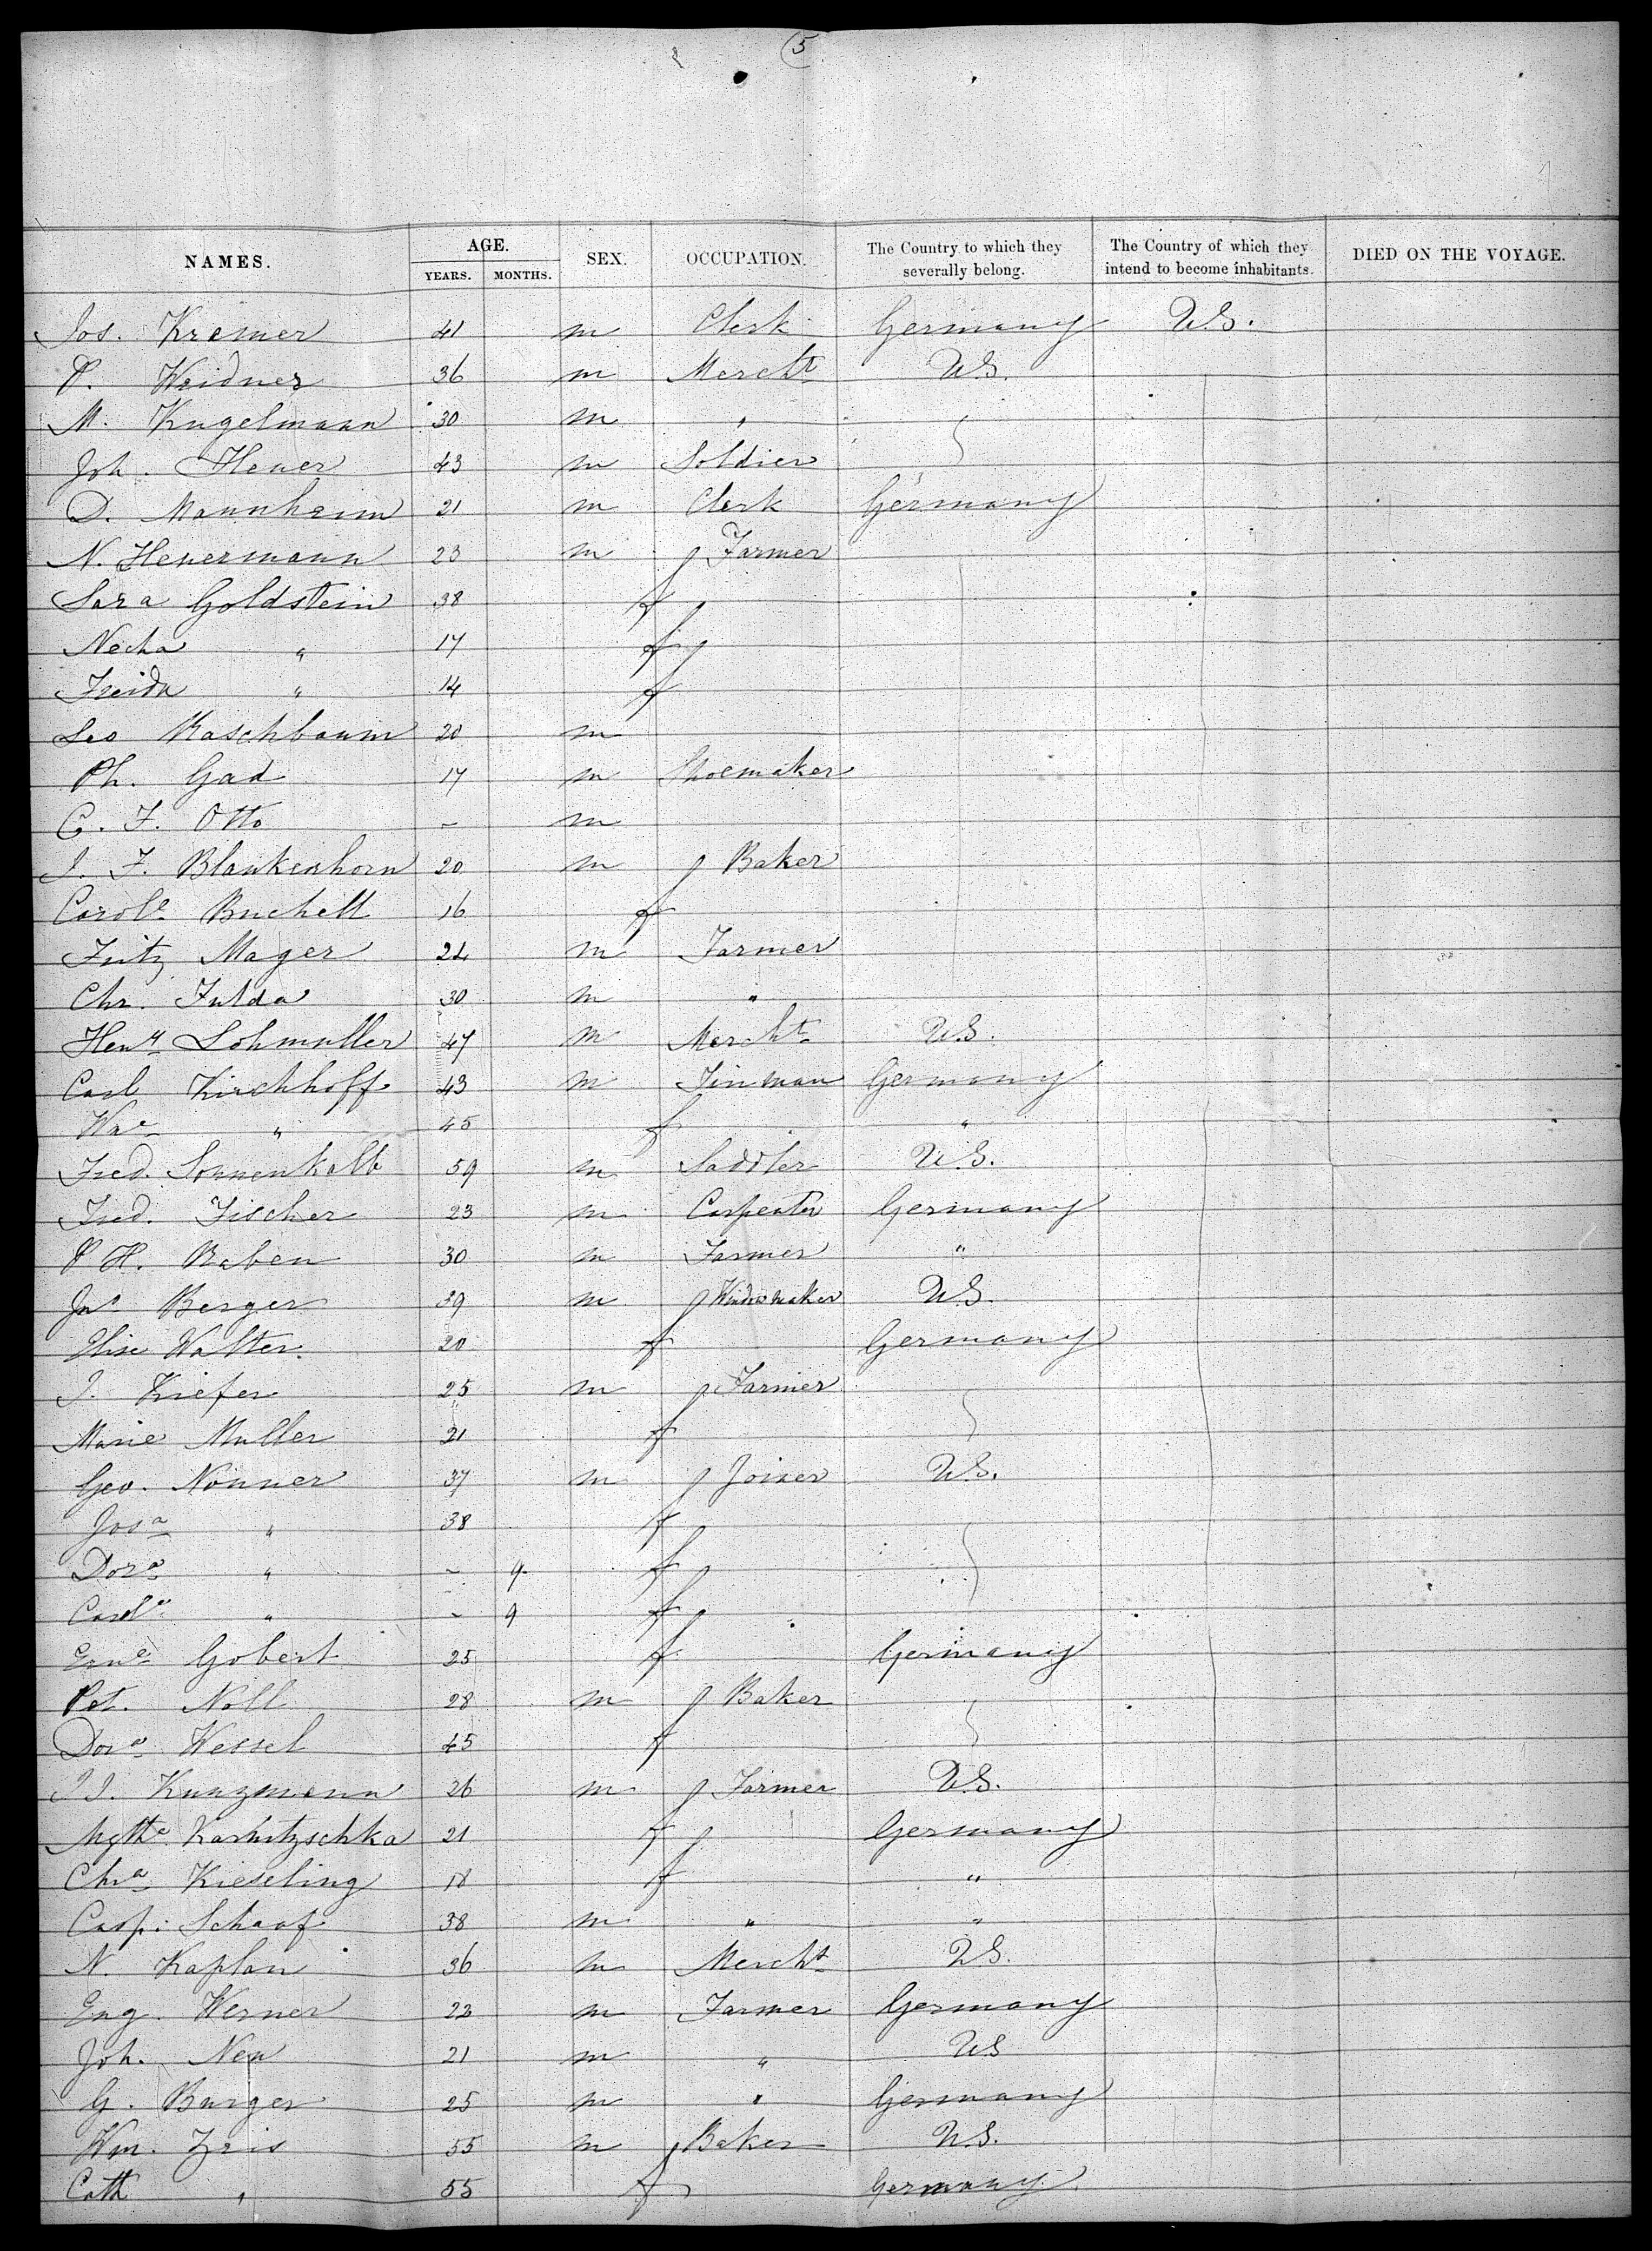 5
NAMES. AGE. SEX. OCCUPATION. The Country to which they severally belong. The Country of which they intend to become inhabitants. DIED ON THE VOYAGE.
YEARS. MONTHS.
Jos. Kremer 41 m Clerk Germany U.S.
P. Weidner 36 m Mercht U.S.
M. Kugelmann 30 m "
Joh. Heuer 43 m Soldier
D. Mannheim 21 m Clerk Germany
N. Heuermann 23 m Farmer
Sara Goldstein 38 f
Necha " 17 f
Freida " 14 f
Leo Raschbaum 20 m
Ph. Gad 17 m Shoemaker
C. F. Otto - m
J. F. Blankenhorn 20 m Baker
Carole Buchelt 16 f
Fritz Mager 24 m Farmer
Chr. Fulda 30 m "
Heny Lohmuller 47 m Mercht U.S.
Carl Kirchhoff 43 m Tinman Germany
" 45 f "
Fred. Sonnenkalb 59 m Saddler U.S.
Fred. Fischer 23 m Carpenter Germany
P. H. Raben 30 m Farmer "
Berger 39 m U.S.
Elise Walter. 20 f Germany
J. Kiefer 25 m Farmer
Marie Muller 21 f
Geo. Nonner 37 m Joiner U.S.
Josa " 38 f
Dora " - 9 f
Carole " - 9 f
Erne Gobert 25 f Germany
Pet. Noll 28 m Baker
Dora Wessel 45 f
J. Kunzmann 26 m Farmer U.S.
Mgthe Karnitzschka 21 f Germany
Chra Kieseling 18 f "
Casp. Schaaf 38 m " "
N. Kaplan 36 m Mercht U.S.
Eug. Werner 22 m Farmer Germany
Joh. Neu 21 m " US
G. Burger 25 m " Germany
Wm. Zris 55 m Baker U.S.
Cath " 55 f Germany